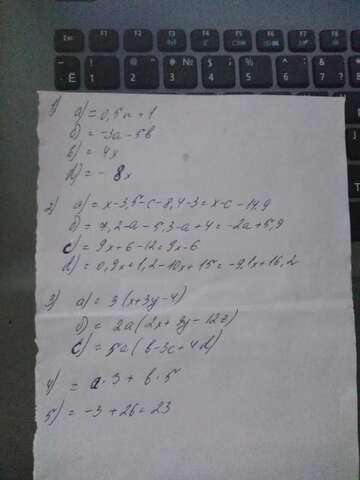 Esc F1 F2 F3 F4 F5 F6 F7
Ё ! 1 " 2 № 3 ; 4 % 5 6 7 8
1) а) = 0,5n + 1
б) = -3a - 5b
в) = 4x
d) = - 8x
2) а) = x - 3,5 - c - 8,4 - 3 = x - c - 14,9
б) = 7,2 - a - 5,3 - a + 4 = -2a + 5,9
c) = 9x + 6 - 12 = 9x - 6
d) = 0,9x + 1,2 - 10x + 15 = -9,1x + 16,2
3) а) = 3(x + 3y - 4)
б) = 2a(2x + 3y - 12z)
c) = 5a(b - 3c + 4d)
4) = a · 3 + b · 5
5) = -3 + 26 = 23